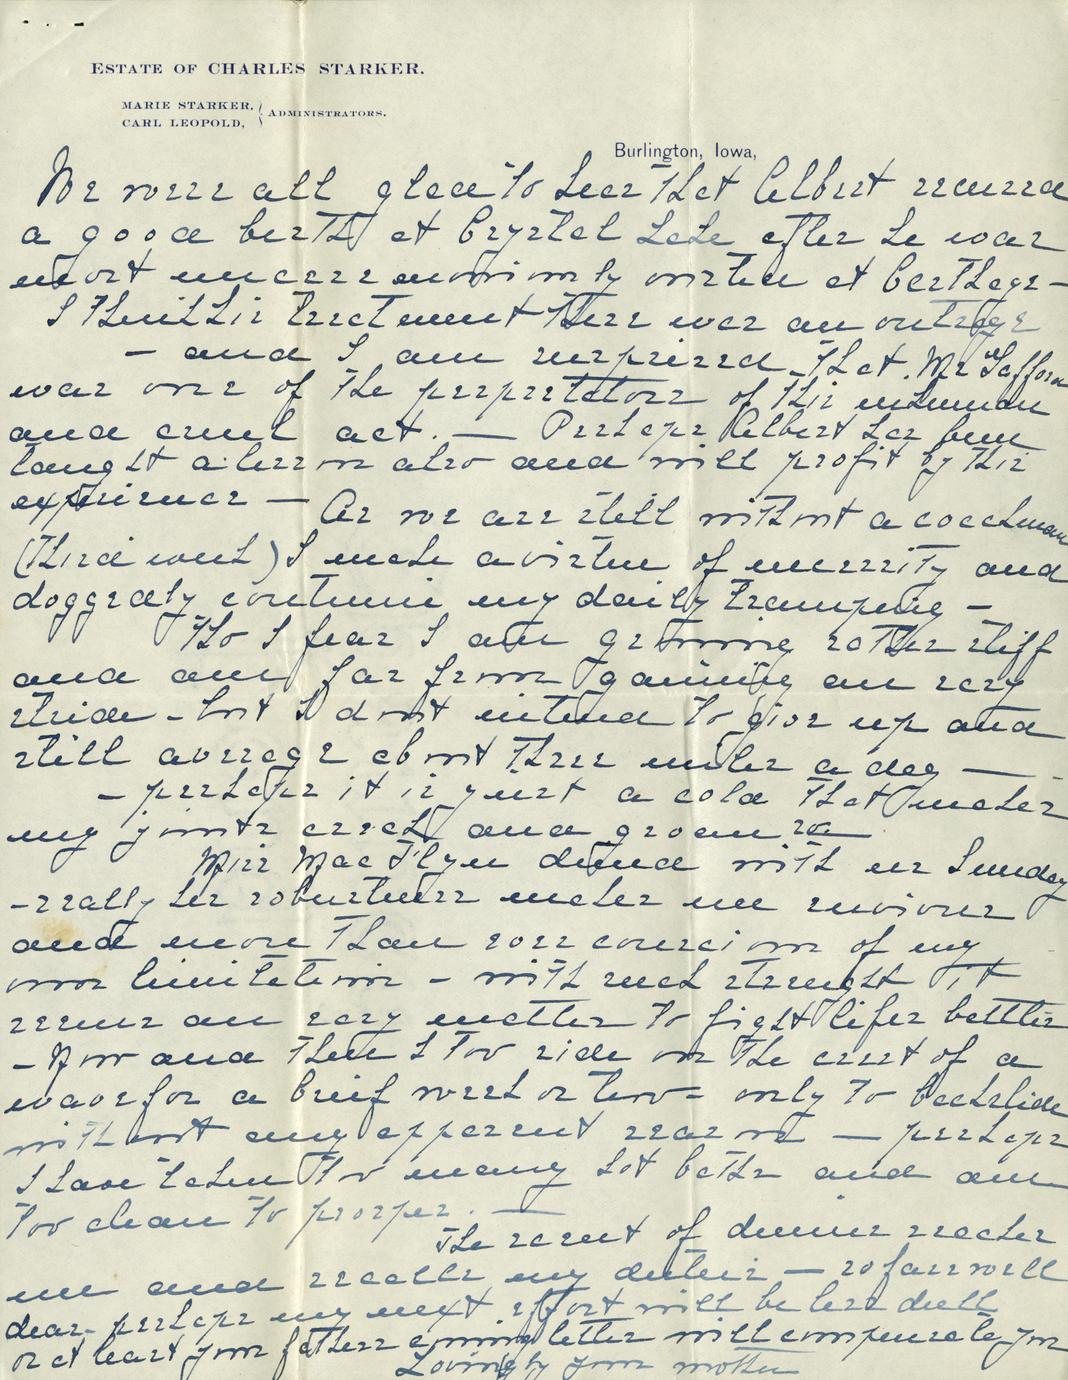 ESTATE OF CHARLES STARKER.
MARIE STARKER,
CARL LEOPOLD, } ADMINISTRATORS.
Burlington, Iowa,
We were all glad to hear that Albert secured
a good berth at Crystal Lake after he was
most unceremoniously ousted at Carthage –
I think his treatment there was an outrage
– and I am surprised that Mr Safford
was one of the perpetrators of this inhuman
and cruel act. — Perhaps Albert has been
taught a lesson also and will profit by this
experience — As we are still without a coachman
(third week) I make a virtue of necessity and
doggedly continue my daily tramping –
Tho I fear I am growing rather stiff
and am far from gaining an easy
stride – but I don't intend to give up and
still average about three miles a day —
– perhaps it is just a cold that makes
my joints creak and groan so
Miss MacFlyn dined with us Sunday
– really her robustness makes me envious
and more than ever conscious of my
own limitations – with such strength it
seems an easy matter to fight lifes battles
– Now and then I too ride on the crest of a
wave for a brief week or two – only to backslide
without any apparent reason — perhaps
I have taken too many hot baths and am
too clean to prosper. —
The scent of dinner reaches
me and recalls my duties — so farewell
dear – perhaps my next effort will be less dull
or at least your fathers coming letter will compensate you
Lovingly your mother